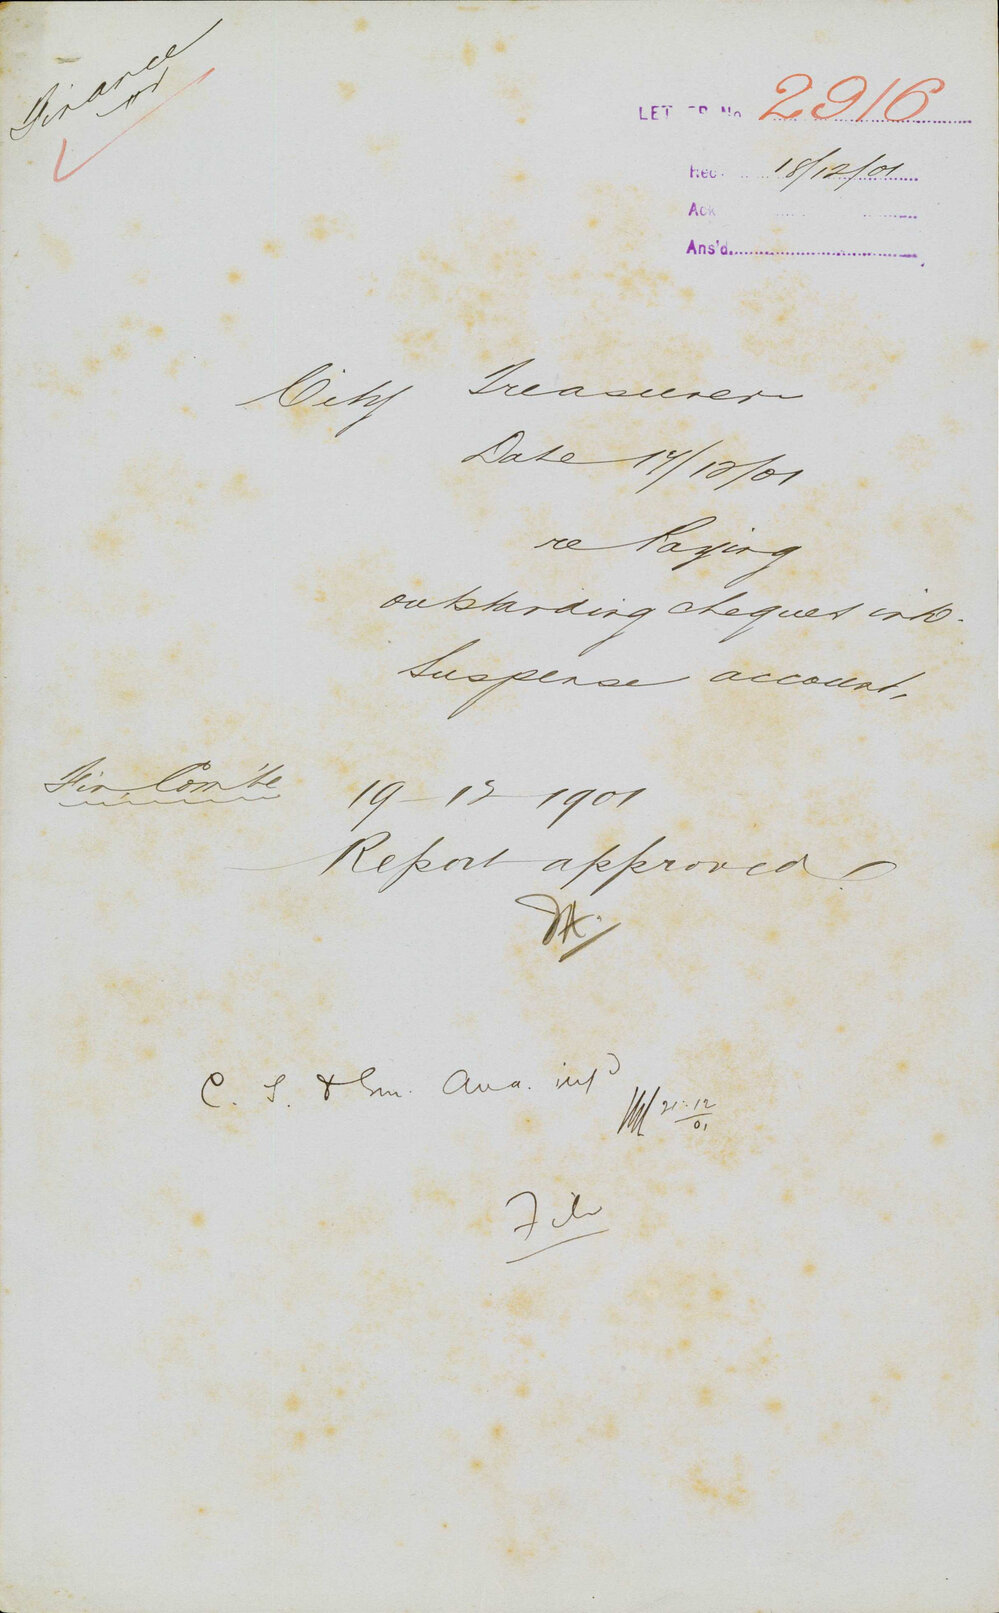 Finance
LETTER No. 2916
Rec 18/12/01
Ack
Ans'd.
City Treasurer
Date 17/12/01
re Paying
outstanding cheques into
Suspense account.
Fin Com'te 19-12-1901
Report approved
C. S. & Aud. inf'd
21.12/01
File